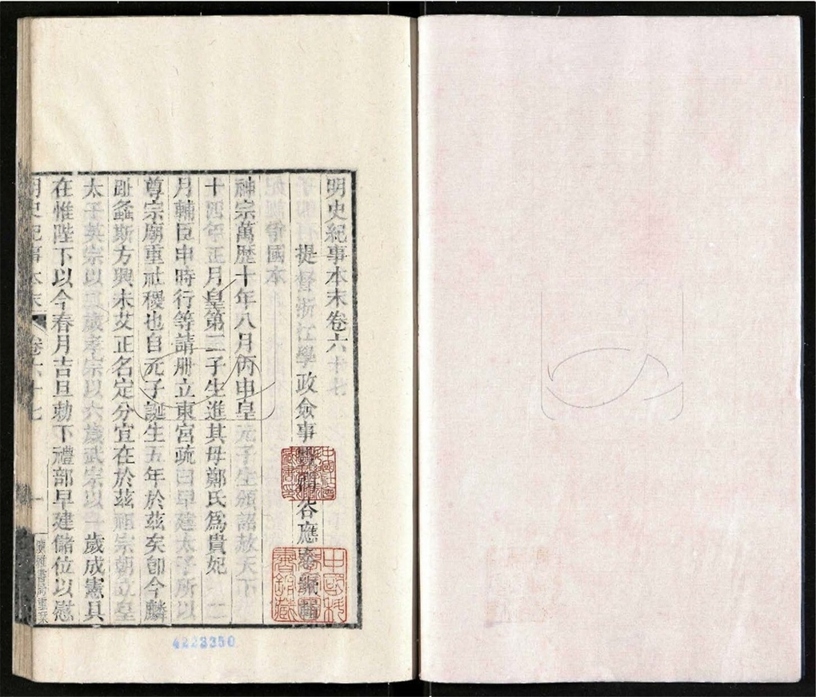 明史紀事本末卷六十七
提督浙江學政僉事豐潤谷應泰編輯
爭國本
神宗萬歷十年八月丙申皇元子生頒詔赦天下
十四年正月皇第三子生進其母鄭氏爲貴妃 二
月輔臣申時行等請冊立東宮疏曰早建太子所以
尊宗廟重社稷也自元子誕生五年於茲矣卽今麟
趾螽斯方興未艾正名定分宜在於茲祖宗朝立皇
太子英宗以二歲孝宗以六歲武宗以一歲成憲具
在惟陛下以今春月吉旦勅下禮部早建儲位以慰
明史紀事本末 卷六十七 一
4223350